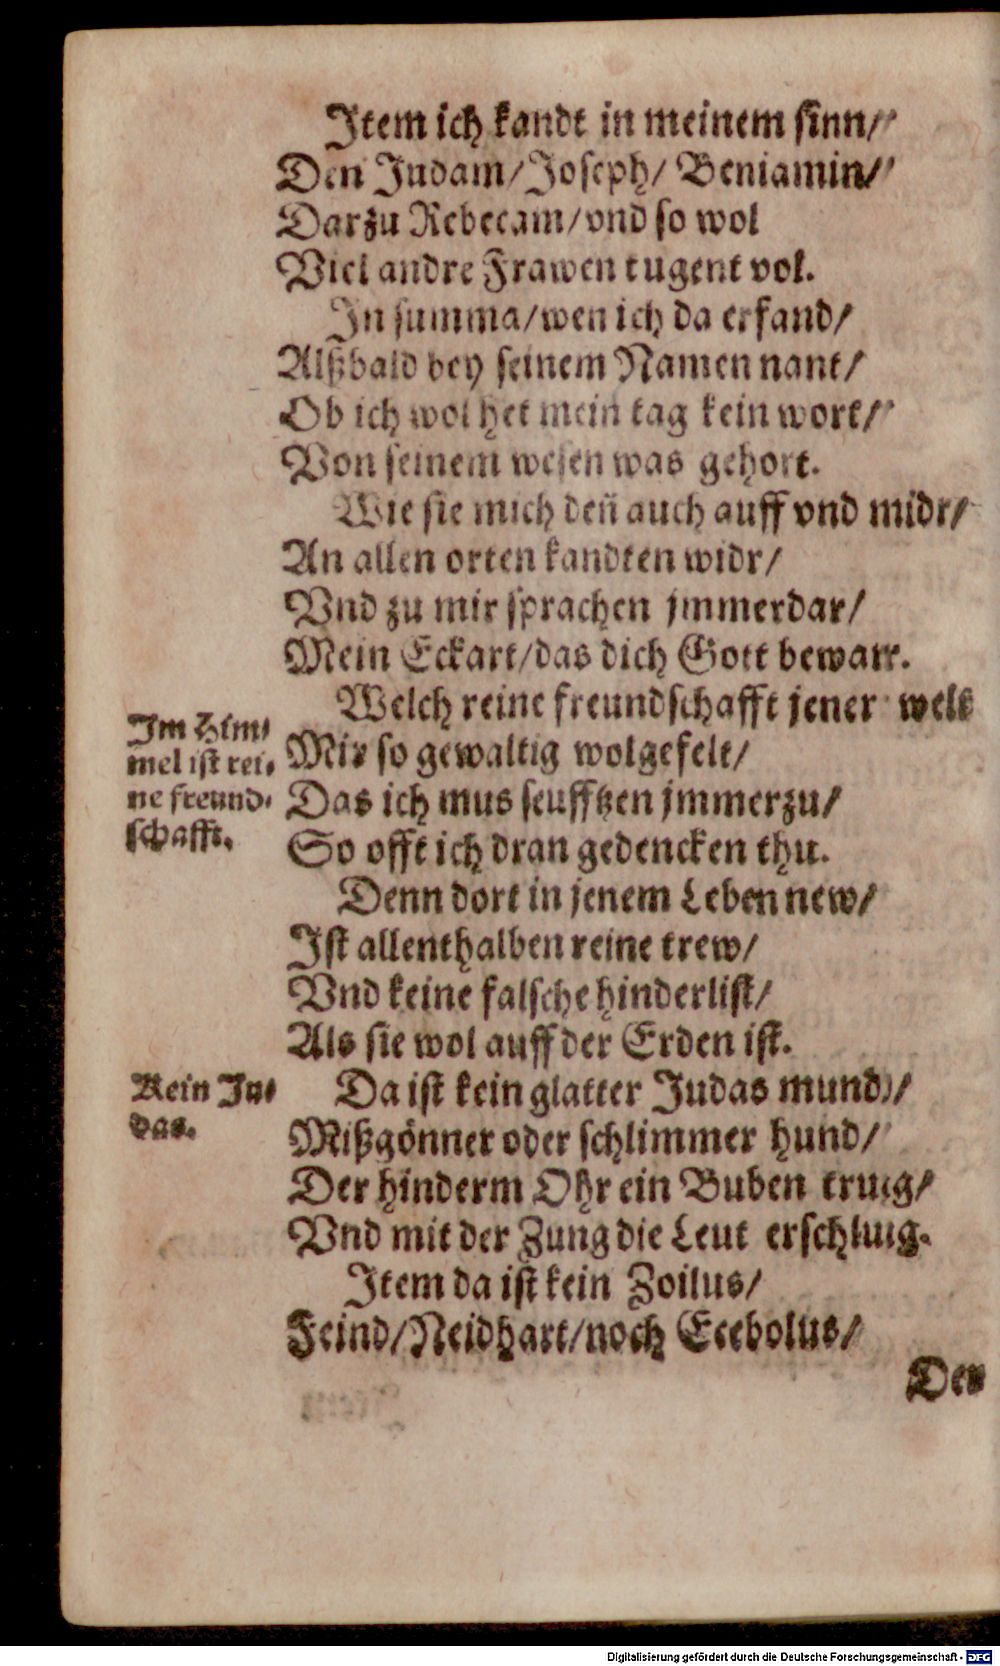 Item ich kandt in meinem sinn/
Den Judam/Joseph/ Beniamin/
Darzu Rebecam/vnd so wol
Viel andre Frawen tugent vol.
In summa/wen ich da erfand/
Alßbald bey seinem Namen nant/
Ob ich wol het mein tag kein wort/
Von seinem wesen was gehort.
Wie sie mich deñ auch auff vnd midr/
An allen orten kandten widr/
Vnd zu mir sprachen jmmerdar/
Mein Eckart/das dich Gott bewarr.
Welch reine freundschafft jener welt
Im Him-
mel ist rei-
ne freund-
schafft.
Mir so gewaltig wolgefelt/
Das ich mus seufftzen jmmerzu/
So offt ich dran gedencken thu.
Denn dort in jenem Leben new/
Ist allenthalben reine trew/
Vnd keine falsche hinderlist/
Als sie wol auff der Erden ist.
Kein Ju-
das.
Da ist kein glatter Judas mund/
Mißgönner oder schlimmer hund/
Der hinderm Ohr ein Buben trug/
Vnd mit der Zung die Leut erschlug.
Item da ist kein Zoilus/
Feind/Neidhart/noch Ecebolus/
Der
Digitalisierung gefördert durch die Deutsche Forschungsgemeinschaft - DFG